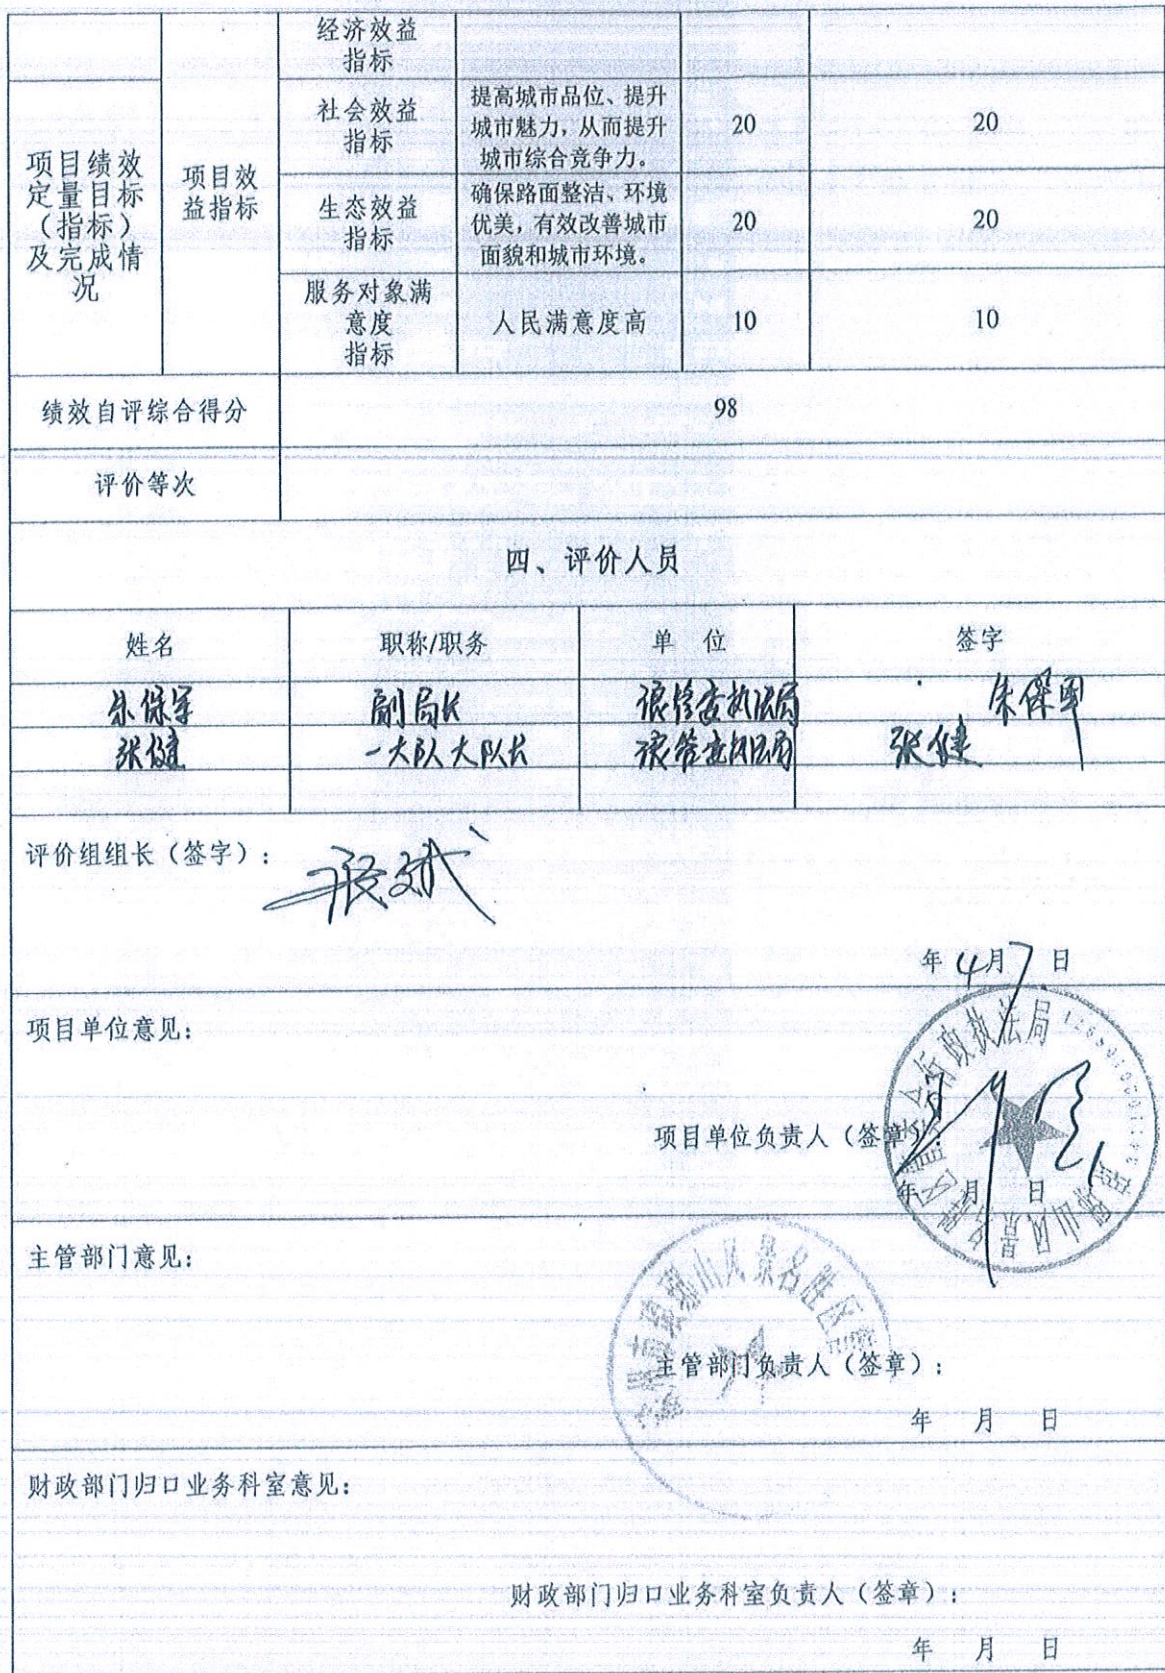 经济效益
指标
项目绩效
定量目标
（指标）
及完成情
况
项目效
益指标
社会效益
指标
提高城市品位、提升
城市魅力，从而提升
城市综合竞争力。
20
20
生态效益
指标
确保路面整洁、环境
优美，有效改善城市
面貌和城市环境。
20
20
服务对象满
意度
指标
人民满意度高
10
10
绩效自评综合得分
98
评价等次
四、评价人员
姓名 职称/职务 单 位 签字
朱保军 副局长 琅管委执法局 朱保军
张健 一大队大队长 琅管委执法局 张健
评价组组长（签字）：
年 4月 7 日
项目单位意见：
行政执法局
项目单位负责人（签章）：
年 月 日
主管部门意见：
滁州市琅琊山风景名胜区管
主管部门负责人（签章）：
年 月 日
财政部门归口业务科室意见：
财政部门归口业务科室负责人（签章）：
年 月 日